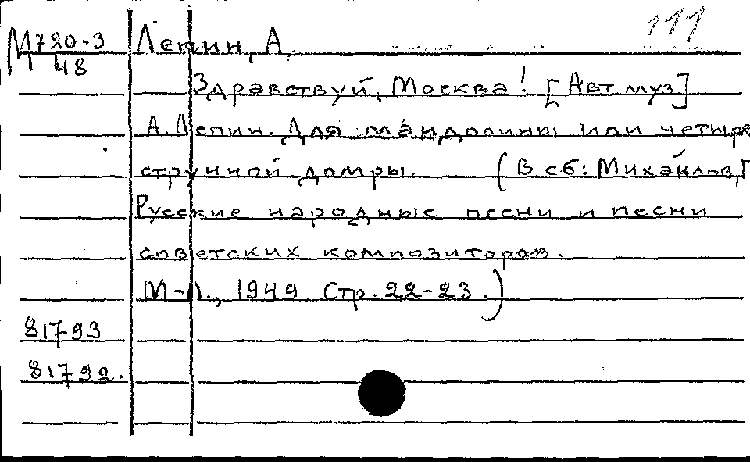 111
М720-3 Лепин, А.
48
Здравствуй, Москва! [Авт. муз]
А. Лепин. Для мандолины или четырех
струнной домры. (В сб: Михайлов, Г
Русские народные песни и песни
советских композиторов.
М-Л., 1949 Стр. 22-23.)
81793
81792.